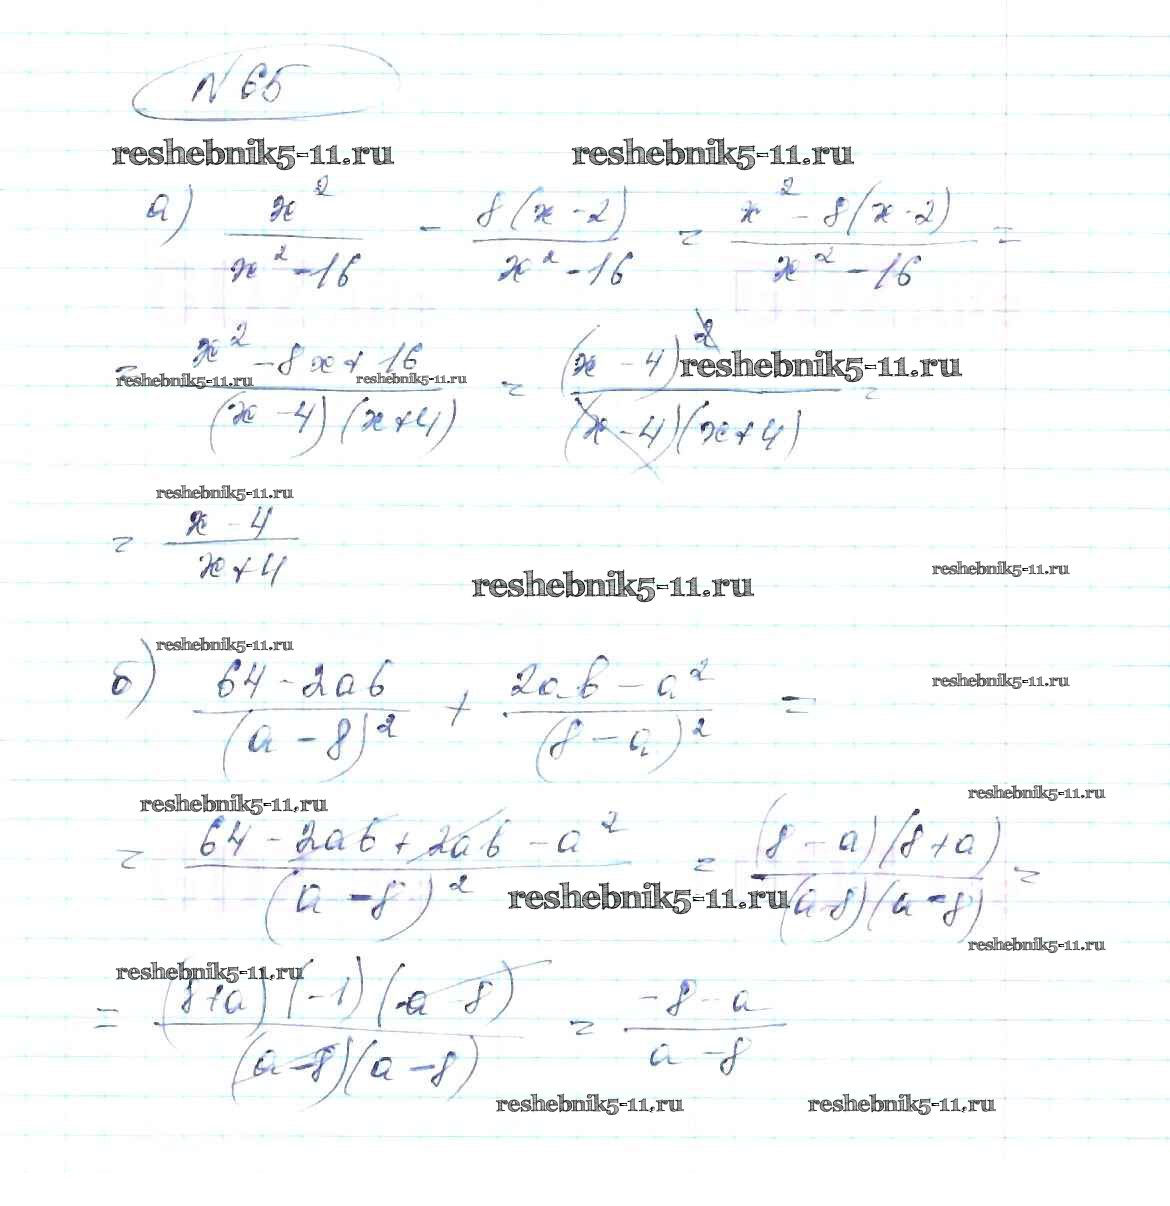 N 65
reshebnik5-11.ru reshebnik5-11.ru
а) x²/(x²-16) - 8(x-2)/(x²-16) = (x²-8(x-2))/(x²-16) =
= (x²-8x+16)/((x-4)(x+4)) = (x-4)²/((x-4)(x+4)) =
reshebnik5-11.ru reshebnik5-11.ru reshebnik5-11.ru
reshebnik5-11.ru
= (x-4)/(x+4)
reshebnik5-11.ru reshebnik5-11.ru
reshebnik5-11.ru
б) (64-2ab)/(a-8)² + (2ab-a²)/(8-a)² =
reshebnik5-11.ru
reshebnik5-11.ru reshebnik5-11.ru
= (64-2ab+2ab-a²)/(a-8)² = ((8-a)(8+a))/((a-8)(a-8)) =
reshebnik5-11.ru
reshebnik5-11.ru reshebnik5-11.ru
= ((8+a)(-1)(a-8))/((a-8)(a-8)) = (-8-a)/(a-8)
reshebnik5-11.ru reshebnik5-11.ru